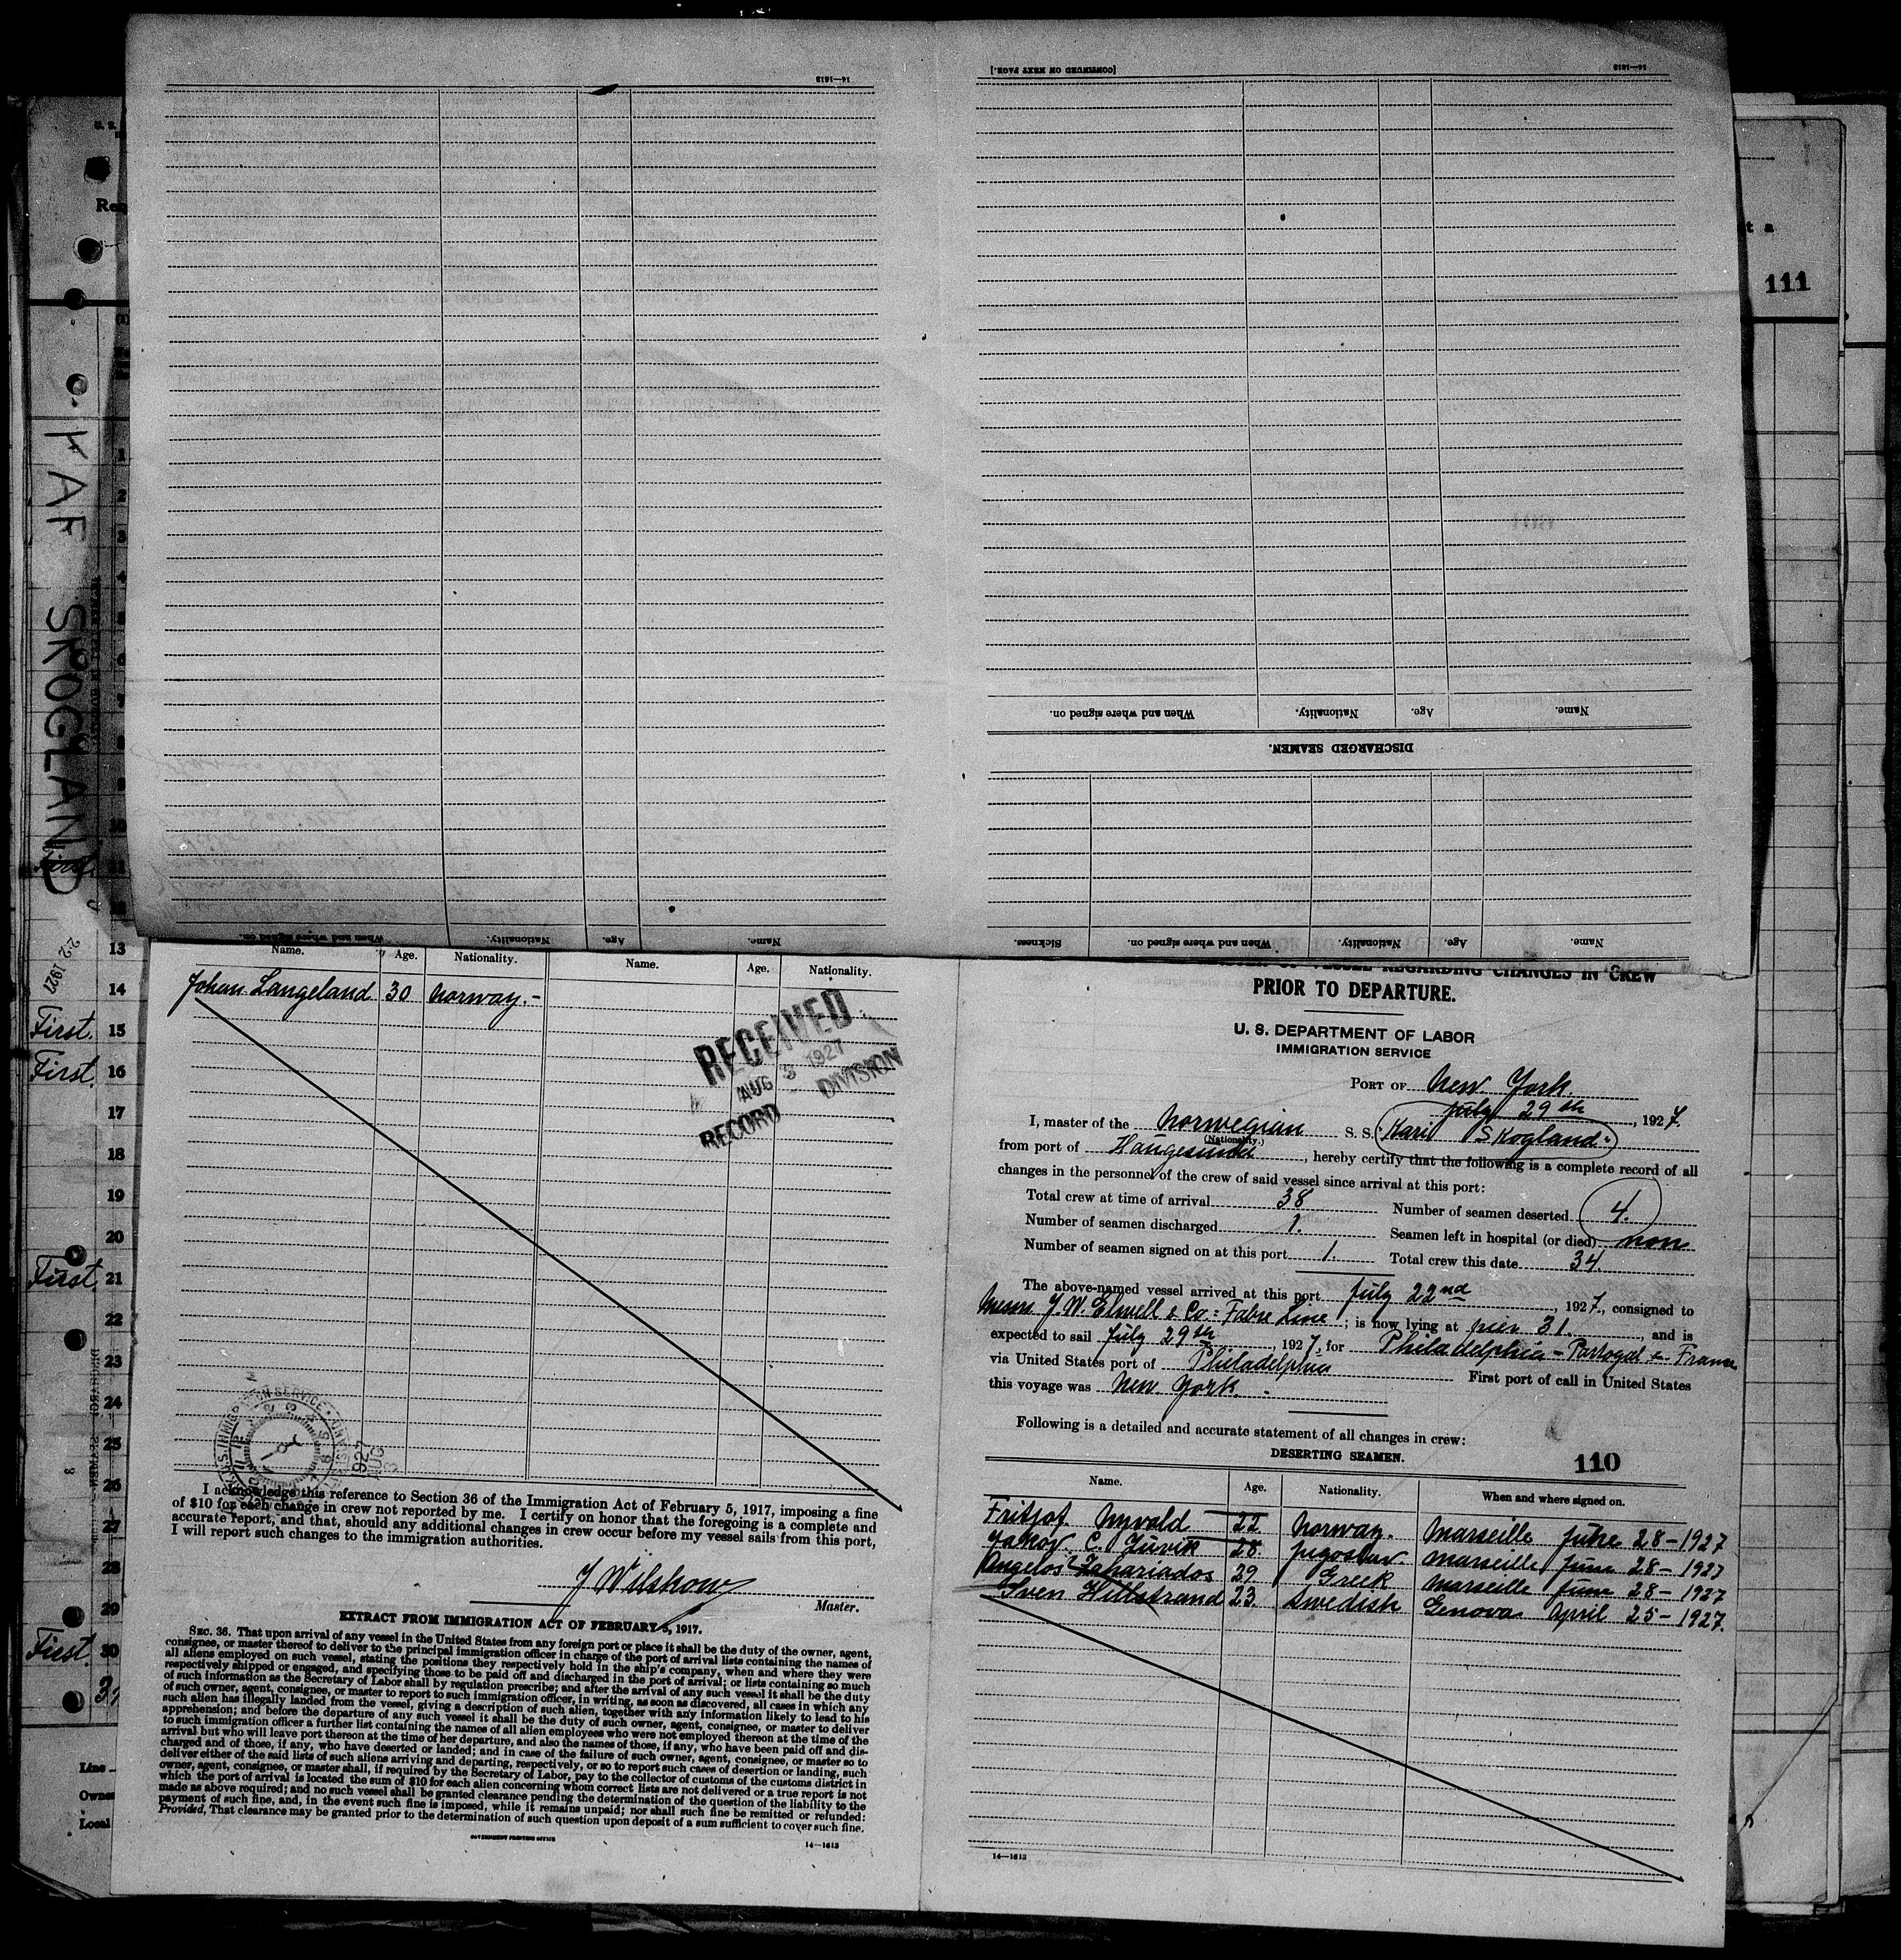 14—1613
[CONTINUED ON NEXT PAGE.]
14—1613
When and where signed on.
Nationality.
Age.
Name.
DISCHARGED SEAMEN.
Sickness.
When and where signed on.
Nationality.
Age.
Name.
When and where signed on.
Nationality.
Age.
Name.
U. S.
111
SKOGLAND
1
2
3
4
5
6
7
8
9
10
First. 11
12
13
14
First. 15
First. 16
17
18
19
20
First. 21
22
23
24
25
26
27
28
29
First. 30
Line
Owner
Local
Name. Age. Nationality. Name. Age. Nationality.
Johan Langeland 30 Norway.-
RECEIVED
AUG 3 1927
RECORD DIVISION
1927
AUG
3
I acknowledge this reference to Section 36 of the Immigration Act of February 5, 1917, imposing a fine
of $10 for each change in crew not reported by me. I certify on honor that the foregoing is a complete and
accurate report, and that, should any additional changes in crew occur before my vessel sails from this port,
I will report such changes to the immigration authorities.
J Wilshow
Master.
EXTRACT FROM IMMIGRATION ACT OF FEBRUARY 5, 1917.
SEC. 36. That upon arrival of any vessel in the United States from any foreign port or place it shall be the duty of the owner, agent,
consignee, or master thereof to deliver to the principal immigration officer in charge of the port of arrival lists containing the names of
all aliens employed on such vessel, stating the positions they respectively hold in the ship's company, when and where they were
respectively shipped or engaged, and specifying those to be paid off and discharged in the port of arrival; or lists containing so much
of such information as the Secretary of Labor shall by regulation prescribe; and after the arrival of any such vessel it shall be the duty
of such owner, agent, consignee, or master to report to such immigration officer, in writing, as soon as discovered, all cases in which any
such alien has illegally landed from the vessel, giving a description of such alien, together with any information likely to lead to his
apprehension; and before the departure of any such vessel it shall be the duty of such owner, agent, consignee, or master to deliver
to such immigration officer a further list containing the names of all alien employees who were not employed thereon at the time of the
arrival but who will leave port thereon at the time of her departure, and also the names of those, if any, who have been paid off and dis-
charged and of those, if any, who have deserted or landed; and in case of the failure of such owner, agent, consignee, or master so to
deliver either of the said lists of such aliens arriving and departing, respectively, or so to report such cases of desertion or landing, such
owner, agent, consignee, or master shall, if required by the Secretary of Labor, pay to the collector of customs of the customs district in
which the port of arrival is located the sum of $10 for each alien concerning whom correct lists are not delivered or a true report is not
made as above required; and no such vessel shall be granted clearance pending the determination of the question of the liability to the
payment of such fine, and, in the event such fine is imposed, while it remains unpaid; nor shall such fine be remitted or refunded:
Provided, That clearance may be granted prior to the determination of such question upon deposit of a sum sufficient to cover such fine.
GOVERNMENT PRINTING OFFICE
14—1613
VESSEL REGARDING CHANGES IN CREW
PRIOR TO DEPARTURE.
U. S. DEPARTMENT OF LABOR
IMMIGRATION SERVICE
PORT OF New York.
July 29th, 1927.
I, master of the Norwegian S. S. Kari Skogland
(Nationality.)
from port of Haugesund, hereby certify that the following is a complete record of all
changes in the personnel of the crew of said vessel since arrival at this port:
Total crew at time of arrival 38 Number of seamen deserted 4.
Number of seamen discharged 1. Seamen left in hospital (or died) non
Number of seamen signed on at this port 1. Total crew this date 34.
The above-named vessel arrived at this port July 22nd, 1927, consigned to
Messrs J. W. Elwell & Co: Fabre Line; is now lying at pier 31, and is
expected to sail July 29th, 1927, for Philadelphia - Portogal & France
via United States port of Philadelphia First port of call in United States
this voyage was New York.
Following is a detailed and accurate statement of all changes in crew:
DESERTING SEAMEN. 110
Name. Age. Nationality. When and where signed on.
Fritjof Nyvold 22 Norway. Marseille June 28-1927
Jakov C. Zuvik 28 Jugoslav. Marseille June 28-1927
Angelos Zahariados 29 Greek Marseille June 28-1927
Sven Hillstrand 23. Swedish Genova April 25-1927.
14—1613